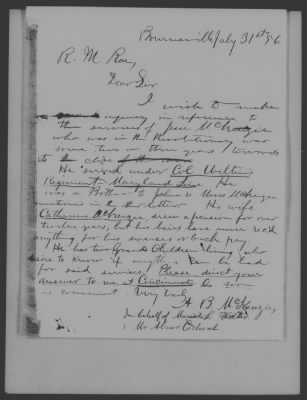 Bourneville July 31st 86
R. M. Rae,
Dear Sir
I wish to make
enquiry in reference to
the services of Jesse McKenzie
who was in the Revolutionary war
some two or three years towards
to the close of the
He served under Col
Regiment Maryland Line He
was a Brother to John & Moses McKenzie
mentioned in the other letter. He wife
Catharine McKenzie drew a pension for over
twelve years, but his heirs have never rec'd
anything for his services or back pay.
He has two Grand Children living who
desire to know if anything can be had
for said services, Please direct your
answer to me at Cincinnati As soon
as convenient Very truly
A B. McKenzie,
In behalf of
& Mr Abner